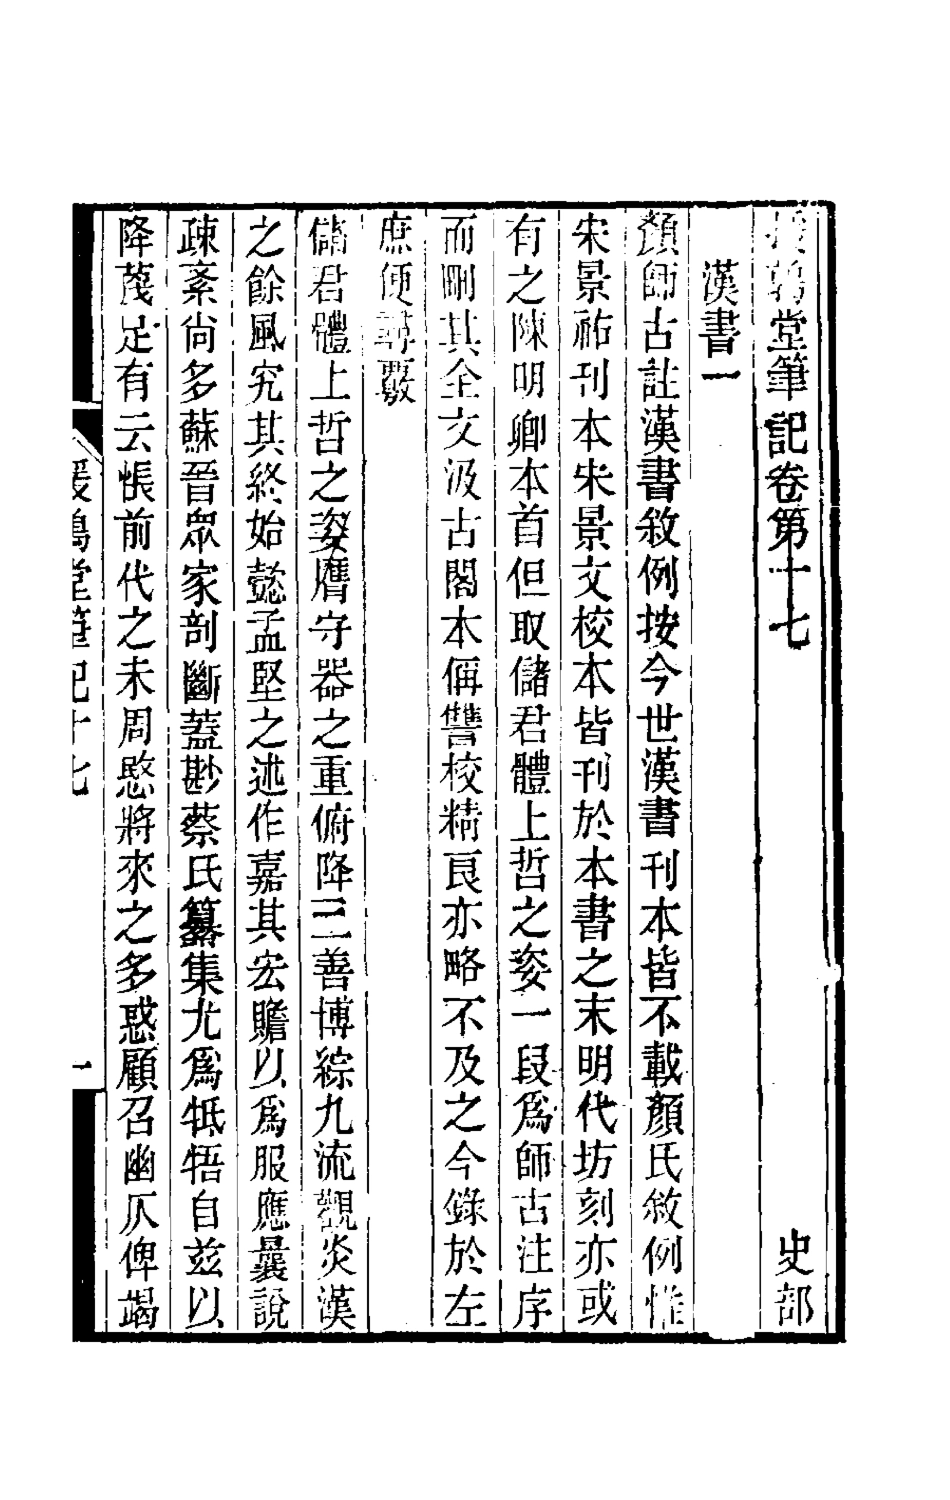 援鶉堂筆記卷第十七　史部
漢書一
顏師古註漢書敘例按今世漢書刊本皆不載顏氏敘例惟
宋景祐刊本宋景文校本皆刊於本書之末明代坊刻亦或
有之陳明卿本首但取儲君體上哲之姿一段爲師古注序
而刪其全文汲古閣本偁讐校精良亦略不及之今錄於左
庶便尋覈
儲君體上哲之姿膺守器之重俯降三善博綜九流觀炎漢
之餘風究其終始懿孟堅之述作嘉其宏贍以爲服應曩說
疎紊尙多蘇晉眾家剖斷蓋尠蔡氏纂集尤爲牴牾自茲以
降蔑足有云悵前代之未周愍將來之多惑顧召幽仄俾竭
援鶉堂筆記十七　一